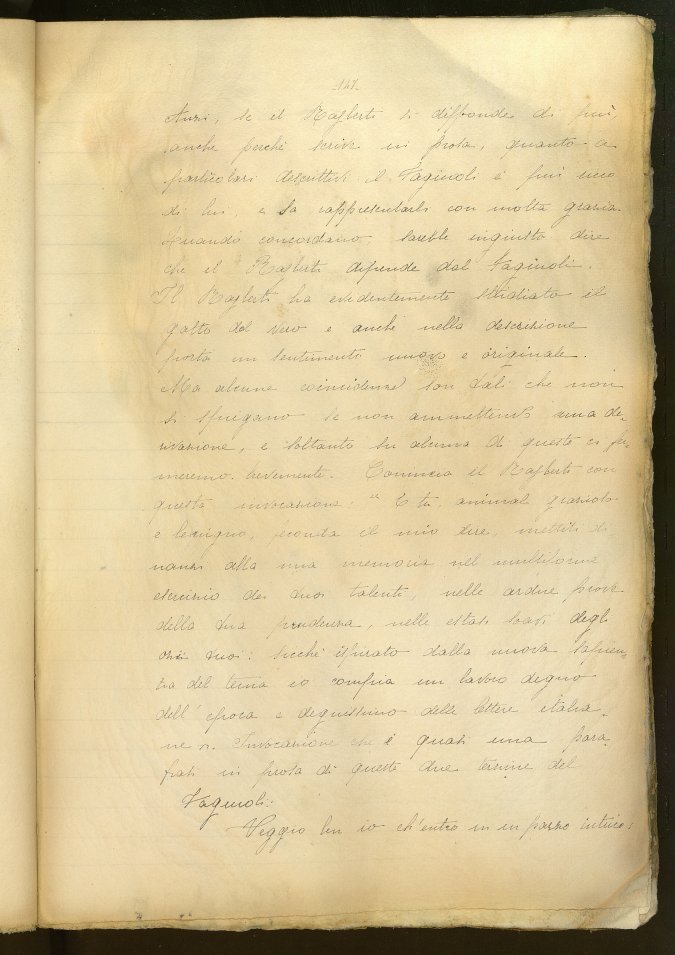 141.
Anzi, se il Rajberti si diffonde di più,
anche perché scrive in prosa, quanto a
particolari descrittivi il Fagiuoli è più ricco
di lui, e sa rappresentarli con molta grazia.
Quando concordano, sarebbe ingiusto dire
che il Rajberti dipende dal Fagiuoli.
Il Rajberti ha evidentemente studiato il
gatto dal vero e anche nella descrizione
porta un sentimento nuovo e originale.
Ma alcune coincidenze son tali che non
si spiegano se non ammettendo una de-
rivazione, e soltanto su alcuna di queste ci fer-
meremo brevemente. Comincia il Rajberti con
questa invocazione: "E tu, animale grazioso
e benigno, feconda il mio dire, mettiti di-
nanzi alla mia memoria nel multiforme
esercizio dei tuoi talenti, nelle ardue prove
della tua prudenza, nelle estasi soavi degli
ozii tuoi: sicché ispirato dalla nuova sapien-
za del tema io compia un lavoro degno
dell'epoca e degnissimo delle lettere italia-
ne". Invocazione che è quasi una para-
frasi in prosa di queste due terzine del
Fagiuoli:
Veggio ben io ch'entro in un passo intrica-